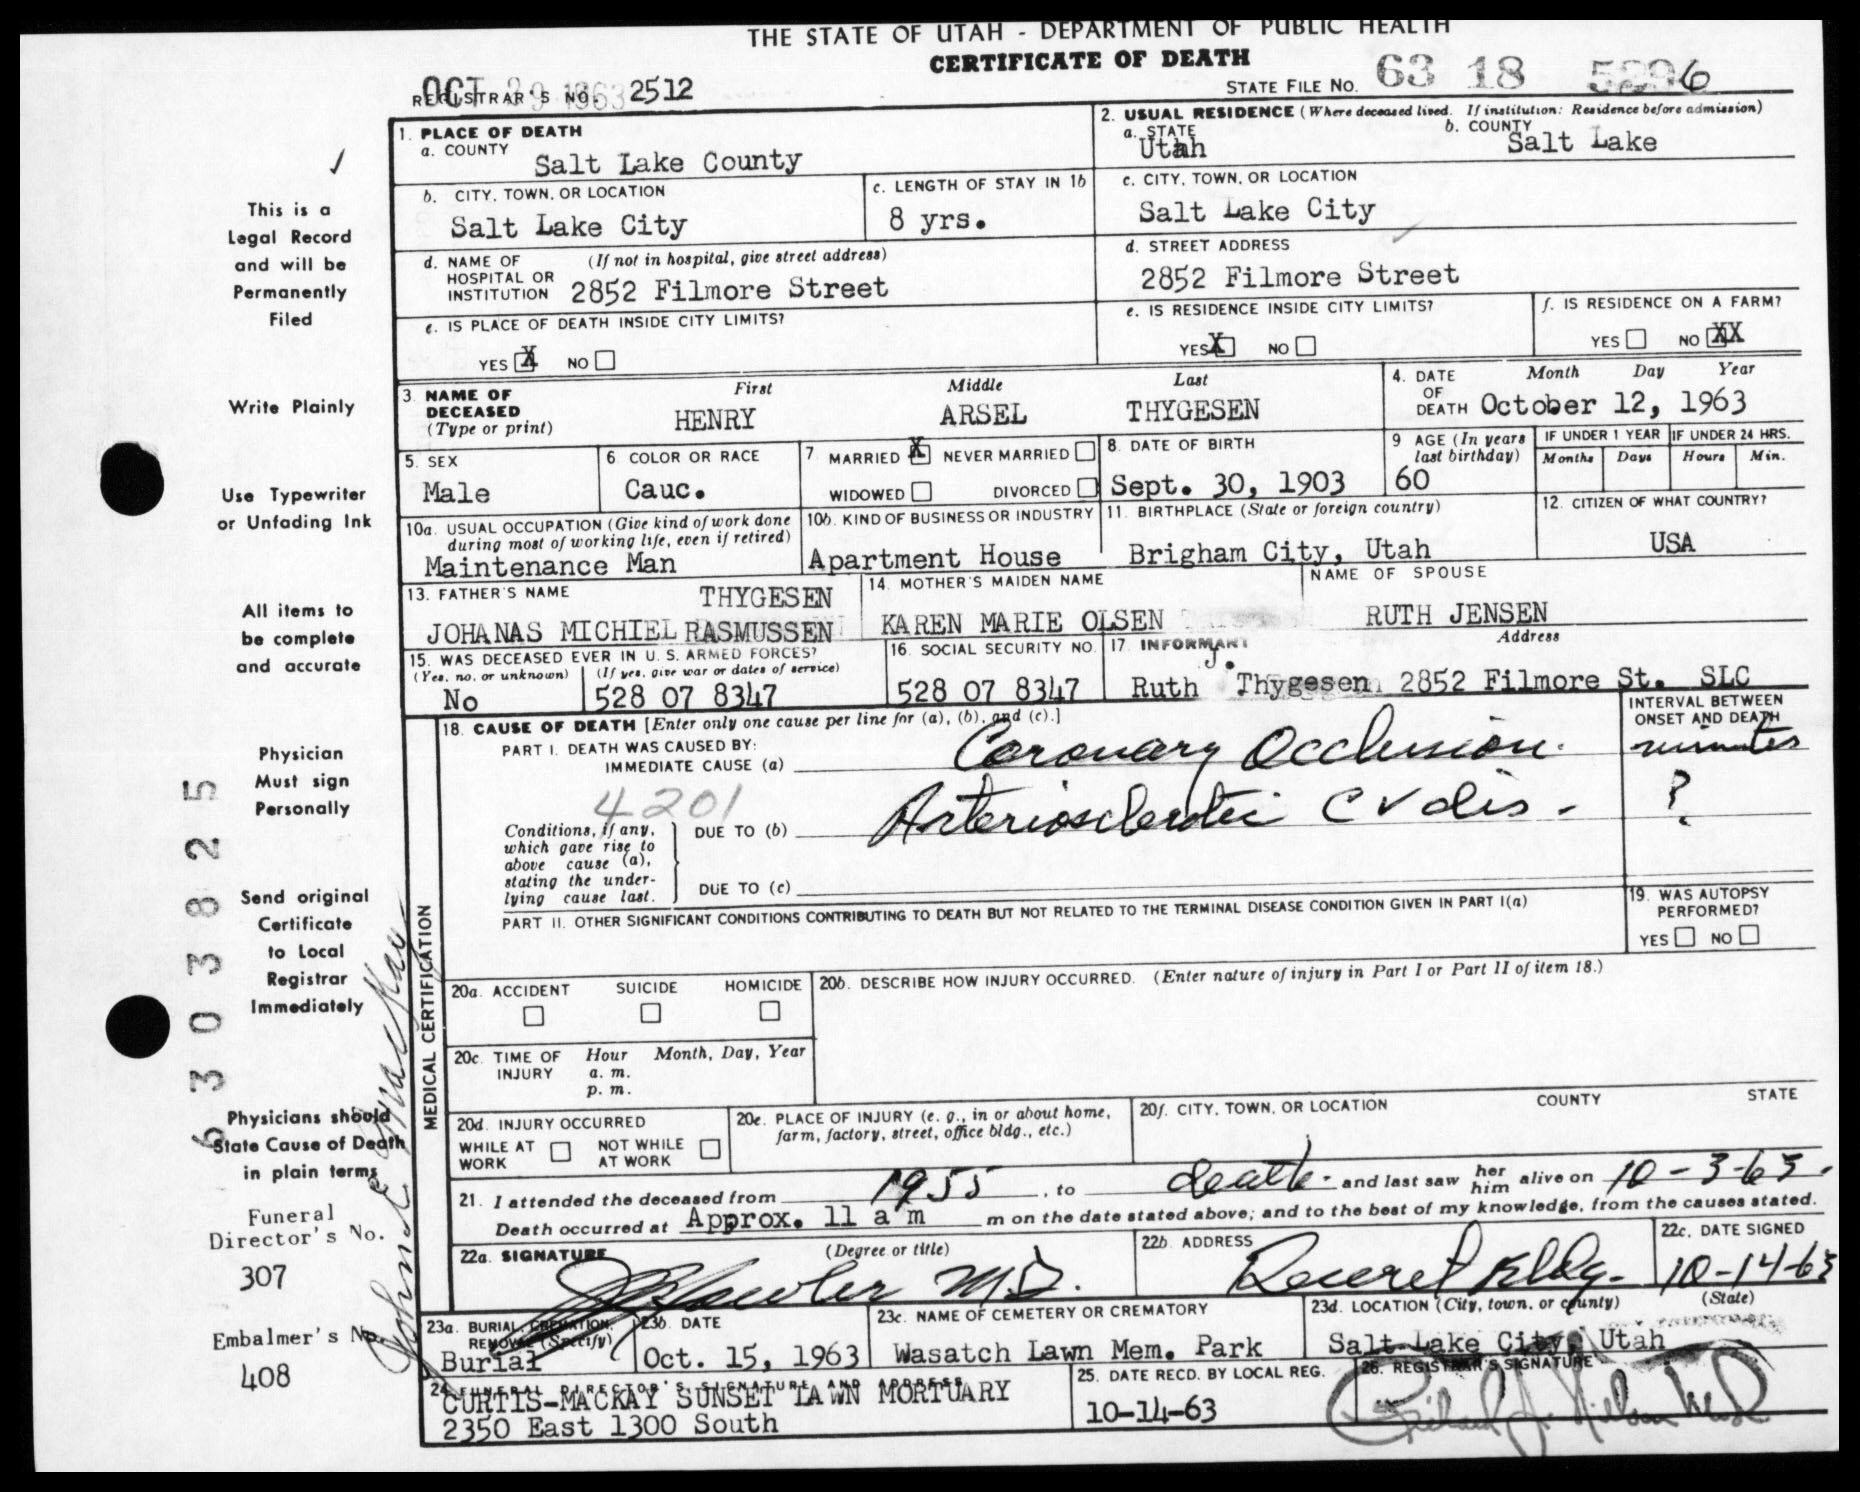 THE STATE OF UTAH - DEPARTMENT OF PUBLIC HEALTH
CERTIFICATE OF DEATH
OCT 29 1963
REGISTRAR'S NO. 2512
STATE FILE NO. 63 18 5296
1. PLACE OF DEATH
a. COUNTY
Salt Lake County
2. USUAL RESIDENCE (Where deceased lived. If institution: Residence before admission)
a. STATE
Utah
b. COUNTY
Salt Lake
b. CITY, TOWN, OR LOCATION
Salt Lake City
c. LENGTH OF STAY IN 1b
8 yrs.
c. CITY, TOWN, OR LOCATION
Salt Lake City
d. NAME OF (If not in hospital, give street address)
HOSPITAL OR
INSTITUTION 2852 Filmore Street
d. STREET ADDRESS
2852 Filmore Street
e. IS PLACE OF DEATH INSIDE CITY LIMITS?
YES X NO
e. IS RESIDENCE INSIDE CITY LIMITS?
YES X NO
f. IS RESIDENCE ON A FARM?
YES NO XX
3. NAME OF
DECEASED
(Type or print)
First Middle Last
HENRY ARSEL THYGESEN
4. DATE
OF
DEATH
Month Day Year
October 12, 1963
5. SEX
Male
6. COLOR OR RACE
Cauc.
7. MARRIED X NEVER MARRIED
WIDOWED DIVORCED
8. DATE OF BIRTH
Sept. 30, 1903
9 AGE (In years
last birthday)
60
IF UNDER 1 YEAR IF UNDER 24 HRS.
Months Days Hours Min.
10a. USUAL OCCUPATION (Give kind of work done
during most of working life, even if retired)
Maintenance Man
10b. KIND OF BUSINESS OR INDUSTRY
Apartment House
11. BIRTHPLACE (State or foreign country)
Brigham City, Utah
12. CITIZEN OF WHAT COUNTRY?
USA
13. FATHER'S NAME
THYGESEN
JOHANAS MICHIEL RASMUSSEN
14. MOTHER'S MAIDEN NAME
KAREN MARIE OLSEN
NAME OF SPOUSE
RUTH JENSEN
15. WAS DECEASED EVER IN U. S. ARMED FORCES?
(Yes, no, or unknown) (If yes, give war or dates of service)
No 528 07 8347
16. SOCIAL SECURITY NO.
528 07 8347
17. INFORMANT Address
Ruth J. Thygesen 2852 Filmore St. SLC
MEDICAL CERTIFICATION
18. CAUSE OF DEATH [Enter only one cause per line for (a), (b), and (c).]
INTERVAL BETWEEN
ONSET AND DEATH
PART I. DEATH WAS CAUSED BY:
IMMEDIATE CAUSE (a) Coronary Occlusion. minutes
4201
Conditions, if any,
which gave rise to
above cause (a),
stating the under-
lying cause last.
DUE TO (b) Arteriosclerotic C V dis. ?
DUE TO (c)
PART II. OTHER SIGNIFICANT CONDITIONS CONTRIBUTING TO DEATH BUT NOT RELATED TO THE TERMINAL DISEASE CONDITION GIVEN IN PART I(a)
19. WAS AUTOPSY
PERFORMED?
YES NO
20a. ACCIDENT SUICIDE HOMICIDE
20b. DESCRIBE HOW INJURY OCCURRED. (Enter nature of injury in Part I or Part II of item 18.)
20c. TIME OF
INJURY
Hour Month, Day, Year
a. m.
p. m.
20d. INJURY OCCURRED
WHILE AT
WORK
NOT WHILE
AT WORK
20e. PLACE OF INJURY (e. g., in or about home,
farm, factory, street, office bldg., etc.)
20f. CITY, TOWN, OR LOCATION COUNTY STATE
21. I attended the deceased from 1955, to death - and last saw her him alive on 10-3-63.
Death occurred at Approx. 11 a m m on the date stated above; and to the best of my knowledge, from the causes stated.
22a. SIGNATURE (Degree or title)
M.D.
22b. ADDRESS
Deseret Bldg.
22c. DATE SIGNED
10-14-63
23a. BURIAL, CREMATION,
REMOVAL (Specify)
Burial
23b. DATE
Oct. 15, 1963
23c. NAME OF CEMETERY OR CREMATORY
Wasatch Lawn Mem. Park
23d. LOCATION (City, town, or county) (State)
Salt Lake City, Utah
24. FUNERAL DIRECTOR'S SIGNATURE AND ADDRESS
CURTIS-MACKAY SUNSET LAWN MORTUARY
2350 East 1300 South
25. DATE RECD. BY LOCAL REG.
10-14-63
26. REGISTRAR'S SIGNATURE
This is a
Legal Record
and will be
Permanently
Filed
Write Plainly
Use Typewriter
or Unfading Ink
All items to
be complete
and accurate
Physician
Must sign
Personally
Send original
Certificate
to Local
Registrar
Immediately
Physicians should
State Cause of Death
in plain terms
Funeral
Director's No.
307
Embalmer's No.
408
John E Mackay
6303825